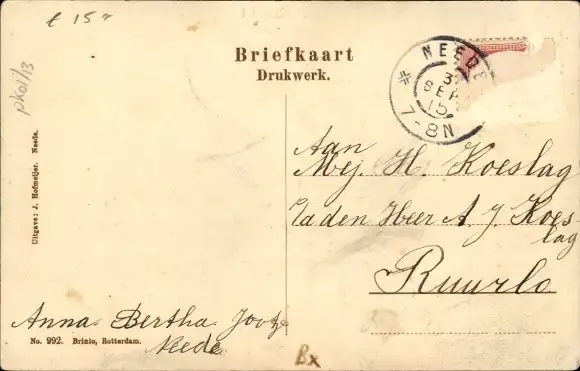 £ 15,-
pk01/13
Briefkaart
Drukwerk.
NEEDE
3
SEP
15
7-8N
Aan
Mej. H. Koeslag
p/a den Heer A. J. Koes
lag
Ruurlo
Uitgave: J. Hofmeijer. Neede.
Anna. Bertha.
Neede
No. 992. Brinio, Rotterdam.
Bx